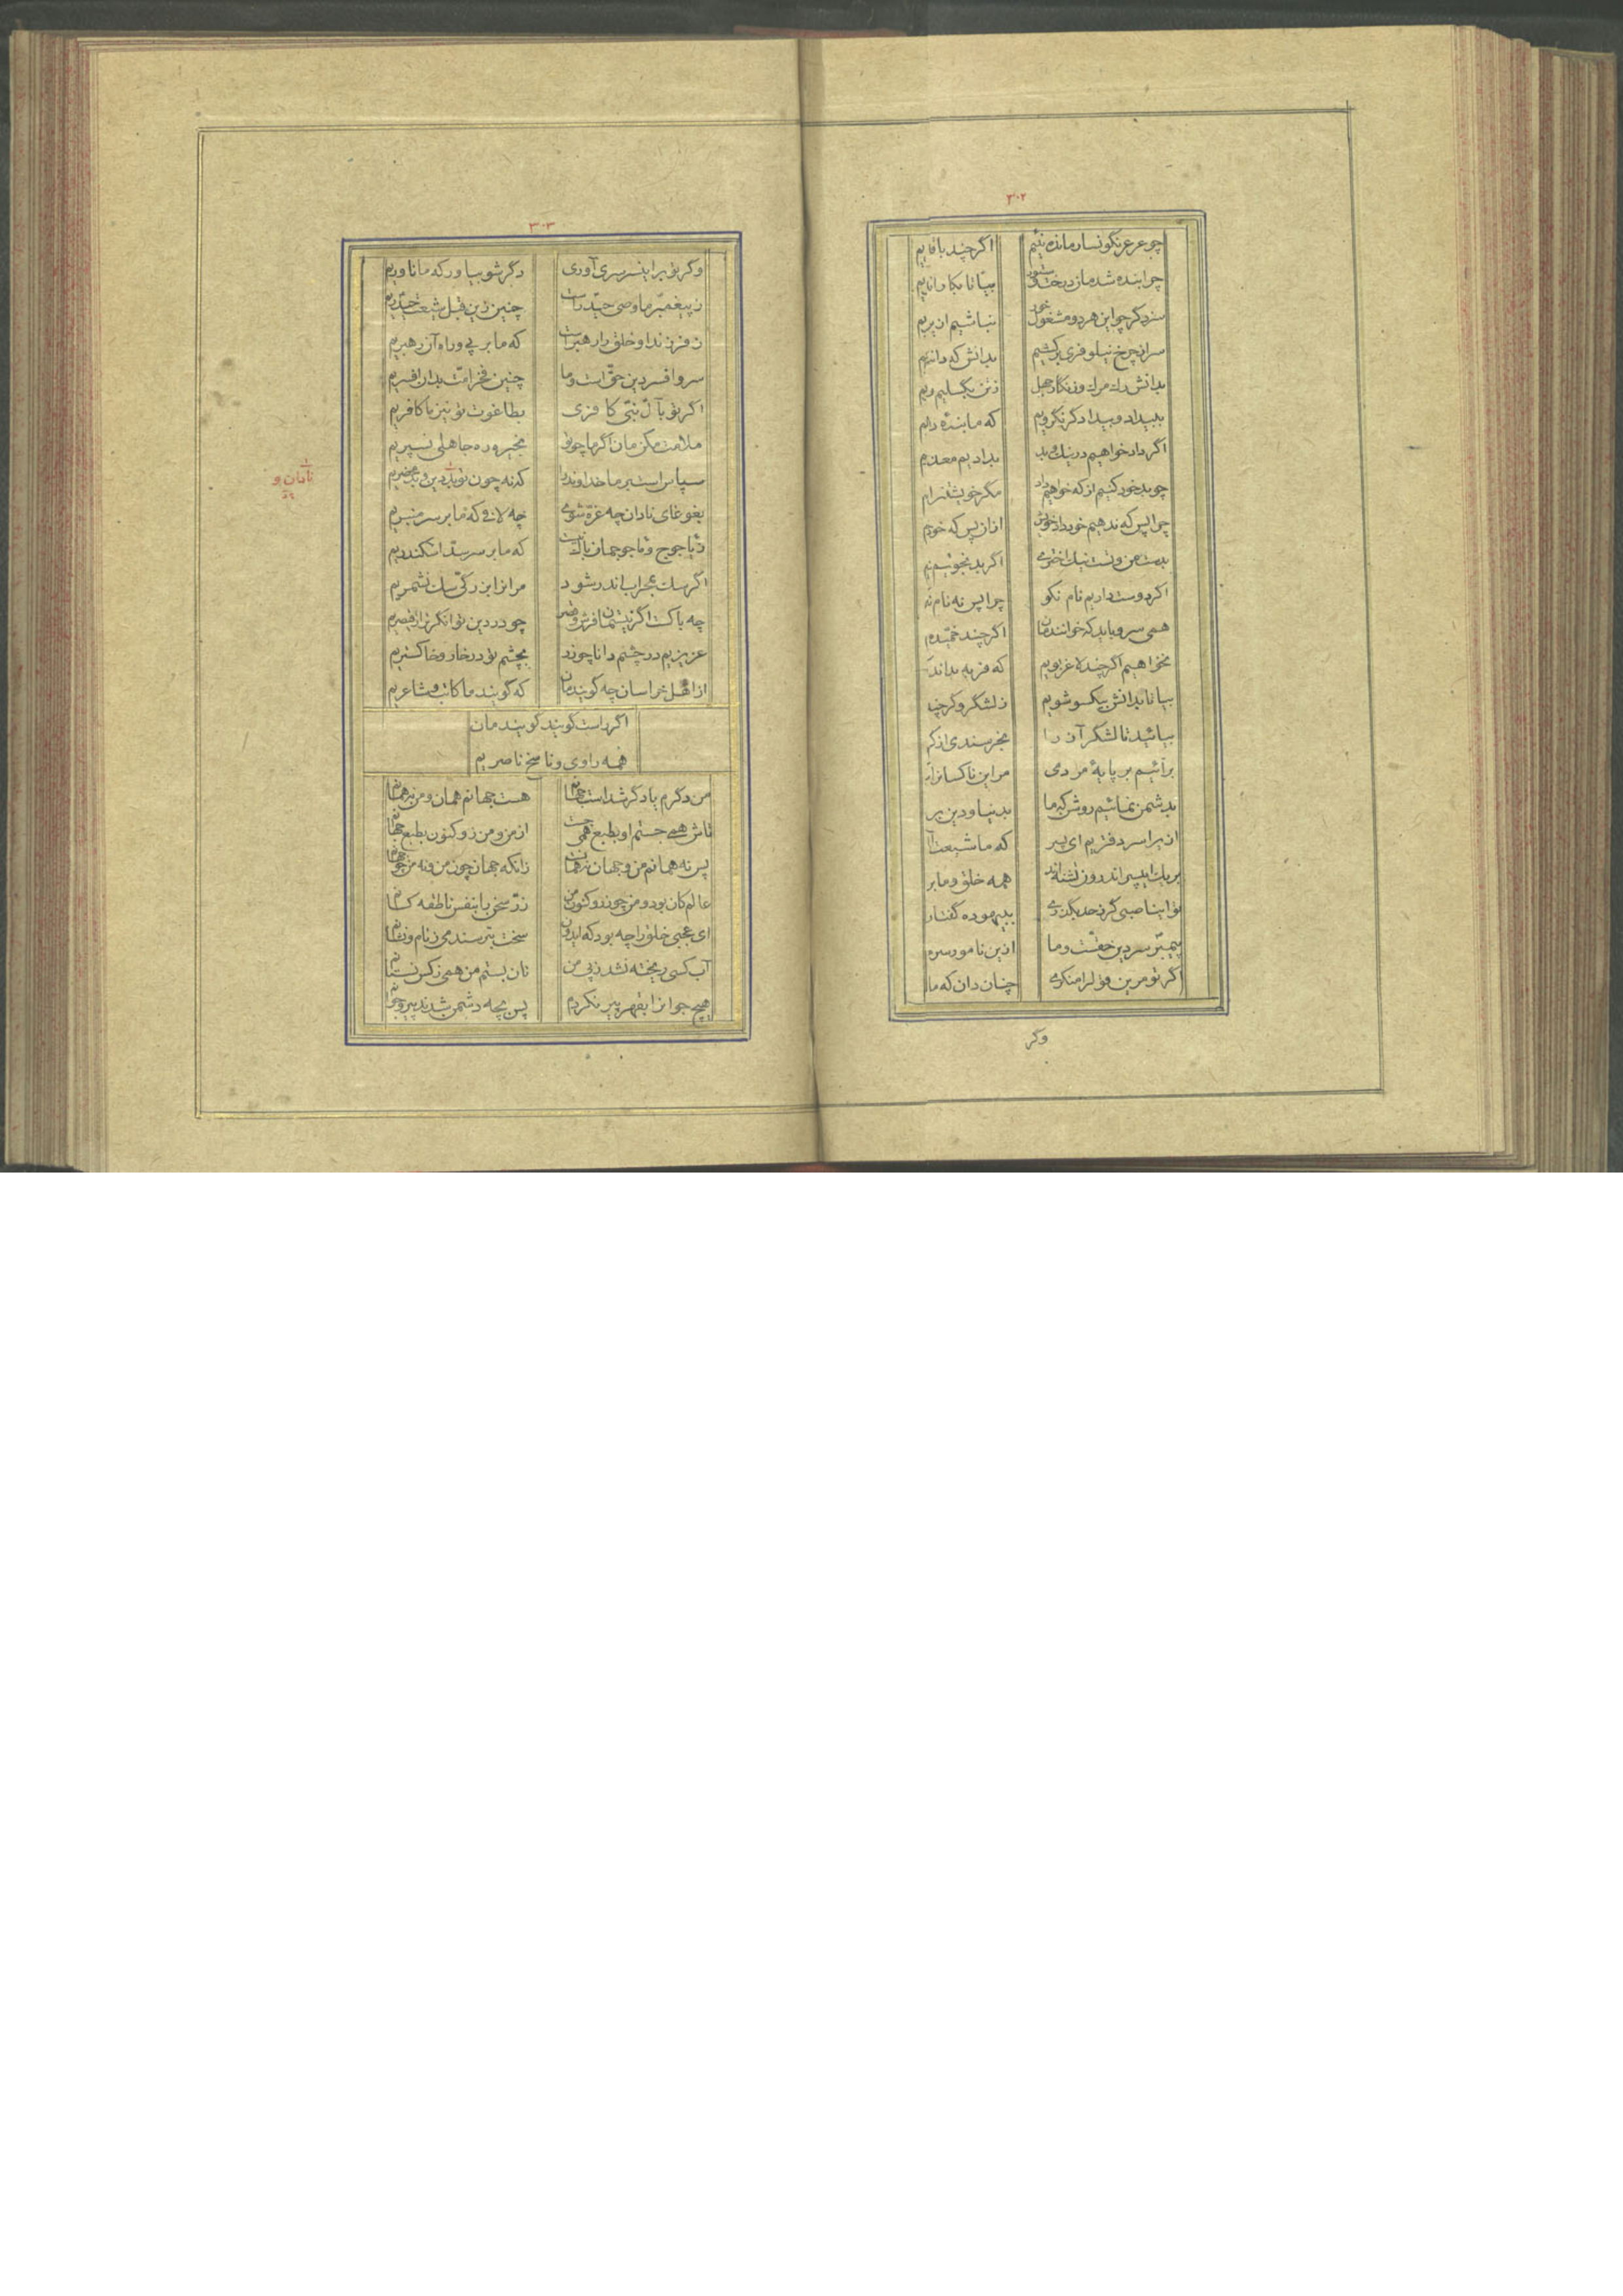 ۳۰۲
چو عرعر نگونسار مانده نئیم اگر چند با
چرا بنده شدمان درخت و ستور بیا تا
سزد گر چو این هر دو مشغول خور نباشیم ازیر
سر از چرخ نیلوفری بر کشیم بدانش که
بدانش رك مر زنگار جهل ز تن بگسلیم و
ببیداد و بیدادگر نگرویم که ما بنده
اگر داد خواهیم در نیك و بد بدادیم معذو
چو بد خود کنیم از که خواهیم داد مگر خویشتن را
چرا پس که ندهیم خود داد خویش از ان پس که خود
بدست من و تست نیك اختری اگر بد نجوئیم
اگر دوست داریم نام نکو چرا پس نه نام
همی سرو باید که خوانندمان اگر چند خمیده
نخواهیم اگر چند لاغر بویم که فربه بداند
بیا تا بدانش بیکسو شویم ز لشگر و گر چند
بیائید تا لشگر آن را بخرسندی از
برآئیم بر پایهٔ مردمی مر این ناکسانرا
بدشمن نمائیم روشن که ما بدنیا و دین بر
از یرا سر دفتریم ای پسر که ما شیعت
بر یك اندر ون تشنه اند همه خلق و ما بر
تو ای ناصبی گر ز حد بگذری ببیهوده گفتار
پیمبر سر دین حقست و ما ازین نامور سر
اگر تو مر این قول را منکری چنان دان که ما
وگر
۳۰۳
وگر تو برا ینسر سری آوری دگر شو بیاور که ما ناوریم
ز پیغمبر ما وصی حیدر است چنین زین قبل شیعت حیدریم
ز فرزند او خلق را رهبر است که ما بر پی و راه آن رهبریم
سر و افسر دین حق است و ما چنین فخر امت بدان افسریم
اگر تو بآل نبی کافری بطاغوت تو نیز ما کافریم
ملامت مکن مان اگر ما چو تو بخیره ره جاهلی نسپریم
سپاس است بر ما خداوند را که نه چون تو بد دین و بد محضریم
نادان و
بغوغای نادان چه غره شوی چه لافی که ما بر سر منبریم
ز یاجوج و ماجوجمان باك نیست که ما بر سر سد اسکندریم
اگر سك بمحراب اندر شود مر انرا بزرگی سك نشمریم
چه باکست اگر نیستمان فرش و قصر چو در دین توانگرتر از قیصریم
عزیزیم در چشم دانا چو زر بچشم تو در خار و خاکستریم
از اهل خراسان چه گویندمان که گویند ما کاتب و شاعریم
اگر راست گویند گویندمان
همه راوی و ناسخ ناصریم
من دگرم یا دگر شداست جهانم هست جهانم همان و من نه همانم
تاش همی جستم او بطبع همی جست از من و من زو کنون بطبع جهانم
پس نه همانم من و جهان نه همان زانکه جهان چون من و نه من چو جهانم
عالم کان بود و من چو زر و کنون من زر سخن را بنفس ناطقه کانم
ای عجبی خلق را چه بود که ایدون سخت بترسند می ز نام و نشانم
آب کسی ریخته نشد ز پی من نان بستم من همی ز کس نستانم
هیچ جوانرا بقهر پیر نکردم پس بچه دشمن شدند پیر و جوانم